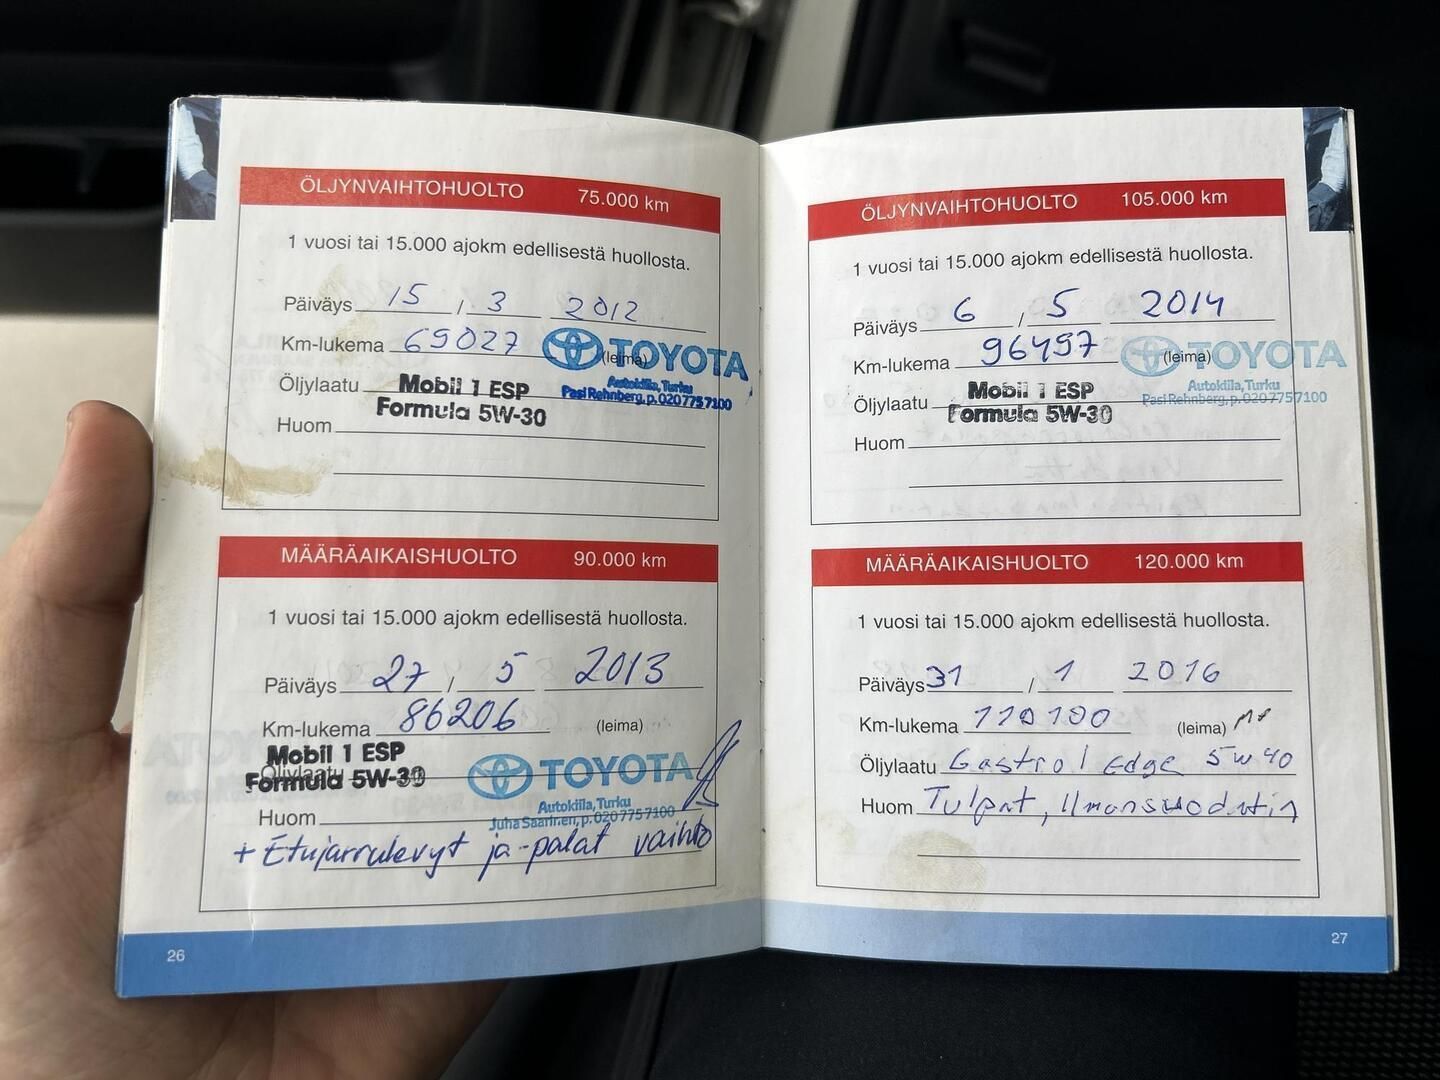 ÖLJYNVAIHTOHUOLTO 75.000 km
1 vuosi tai 15.000 ajokm edellisestä huollosta.
Päiväys 15 / 3 2012
Km-lukema 69027 (leima)
TOYOTA
Autokiila, Turku
Pasi Rehnberg, p. 020 775 7100
Öljylaatu Mobil 1 ESP
Formula 5W-30
Huom
MÄÄRÄAIKAISHUOLTO 90.000 km
1 vuosi tai 15.000 ajokm edellisestä huollosta.
Päiväys 27 / 5 2013
Km-lukema 86206 (leima)
Mobil 1 ESP
Öljylaatu Formula 5W-30
TOYOTA
Autokiila, Turku
Juha Saarinen, p. 020 775 7100
Huom
+ Etujarrulevyt ja -palat vaihto
26
ÖLJYNVAIHTOHUOLTO 105.000 km
1 vuosi tai 15.000 ajokm edellisestä huollosta.
Päiväys 6 / 5 2014
Km-lukema 96497 (leima)
TOYOTA
Autokiila, Turku
Pasi Rehnberg, p. 020 775 7100
Öljylaatu Mobil 1 ESP
Formula 5W-30
Huom
MÄÄRÄAIKAISHUOLTO 120.000 km
1 vuosi tai 15.000 ajokm edellisestä huollosta.
Päiväys 31 / 1 2016
Km-lukema 110100 (leima)
Öljylaatu Castrol Edge 5w40
Huom Tulpat, Ilmansuodatin
27